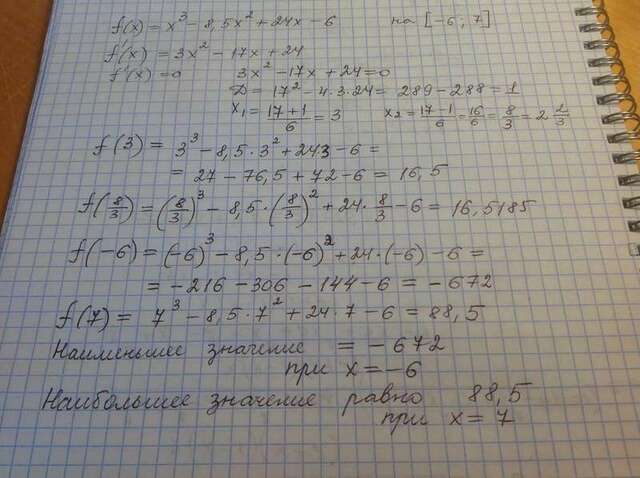 f(x) = x³ - 8,5x² + 24x - 6 на [-6; 7]
f'(x) = 3x² - 17x + 24
f'(x) = 0 3x² - 17x + 24 = 0
D = 17² - 4·3·24 = 289 - 288 = 1
x₁ = (17+1)/6 = 3 x₂ = (17-1)/6 = 16/6 = 8/3 = 2 2/3
f(3) = 3³ - 8,5·3² + 243 - 6 =
= 27 - 76,5 + 72 - 6 = 16,5
f(8/3) = (8/3)³ - 8,5·(8/3)² + 24·8/3 - 6 = 16,5185
f(-6) = (-6)³ - 8,5·(-6)² + 24·(-6) - 6 =
= -216 - 306 - 144 - 6 = -672
f(7) = 7³ - 8,5·7² + 24·7 - 6 = 88,5
Наименьшее значение = -672
при x = -6
Наибольшее значение равно 88,5
при x = 7